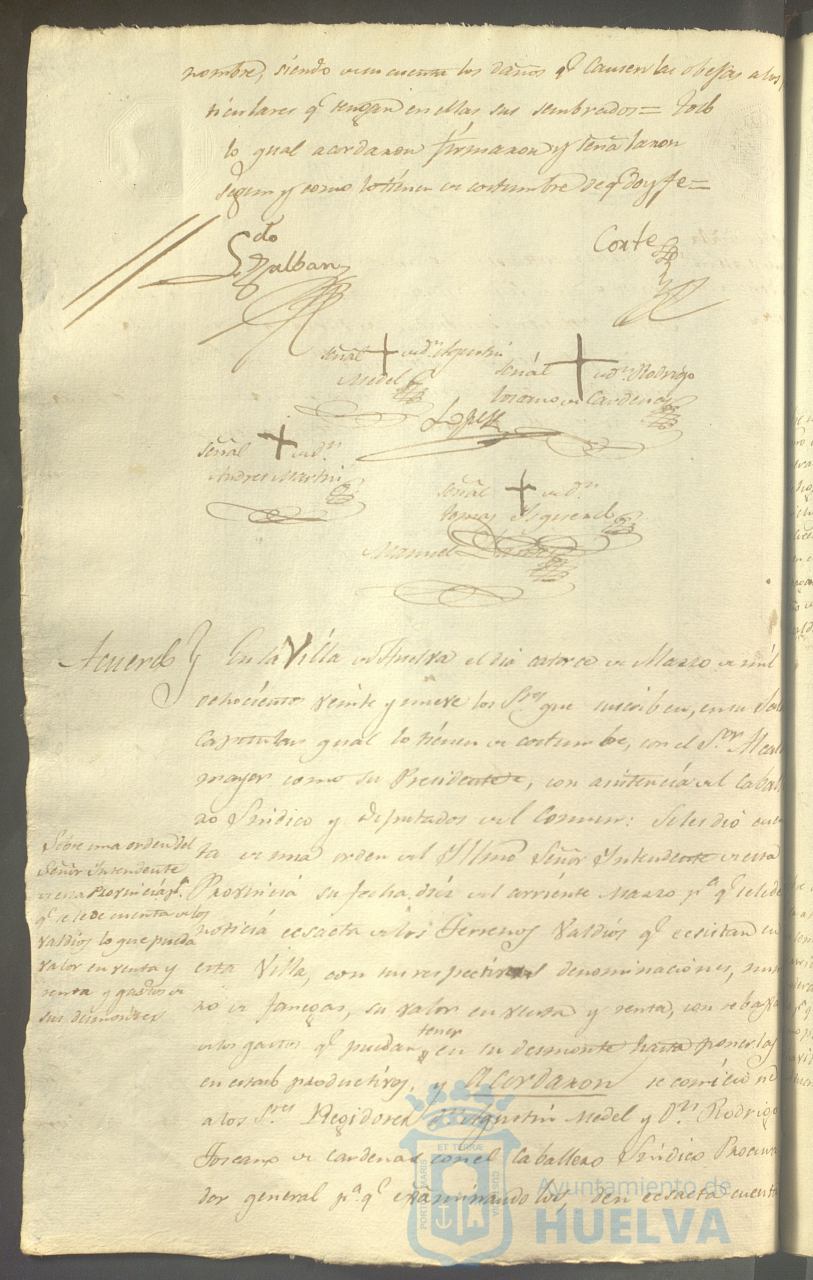 nombre, siendo de su cuenta los daños qᵉ causen las obejas a los
ticulares qᵉ tengan en ellas sus sembrados= Todo
lo qual acordaron firmaron y señalaron
segun y como lo tienen de costumbre de qᵉ doy fe=
Sᵈᵒ Galban
Corte
señal + de Dⁿ Agustin
Medel
señal + de Dⁿ Rodrigo
toscano de Cardenas
Lopez
señal + de Dⁿ
Andres Martin
señal + de Dⁿ
tomas
Manuel
Acuerdo
En la Villa de Huelva el dia catorce de Marzo de mil
ochocientos veinte y nueve los Sʳᵉˢ que suscriben, en su Sala
Capitular qual lo tienen de costumbre, con el Sᵒʳ Alcal
mayor como su Presidente, con asistencia del Caball
ro Sindico y Diputados del Comun: Se les dió cuen
ta de una orden del Ylmo Señor Yntendente de esta
Provincia su fecha diez del corriente Marzo pᵃ qᵉ se le de
noticia ecsacta de los Terrenos Valdios qᵉ ecsistan en
esta Villa, con sus respectivas denominaciones, nume
ro de fanegas, su valor en venta y renta, con rebaxa
de los gastos qᵉ puedan tener en su desmonte hasta ponerlas
en estado productivos, y Acordaron se comicione
a los Sʳᵉˢ Regidores Dⁿ Agustin Medel y Dⁿ Rodrigo
Toscano de Cardenas con el Caballero Sindico Procura
dor general pᵃ qᵉ ecsaminandolos, den ecsacta cuenta
Sobre una orden del
Señor Yntendente
de esta Provincia pᵃ
qᵉ se le de cuenta de los
Valdios lo que pueda
valer en venta y
renta y gastos de
sus desmontes
PORTUS MARIS ET TERRAE CUSTODIA
Ayuntamiento de
HUELVA